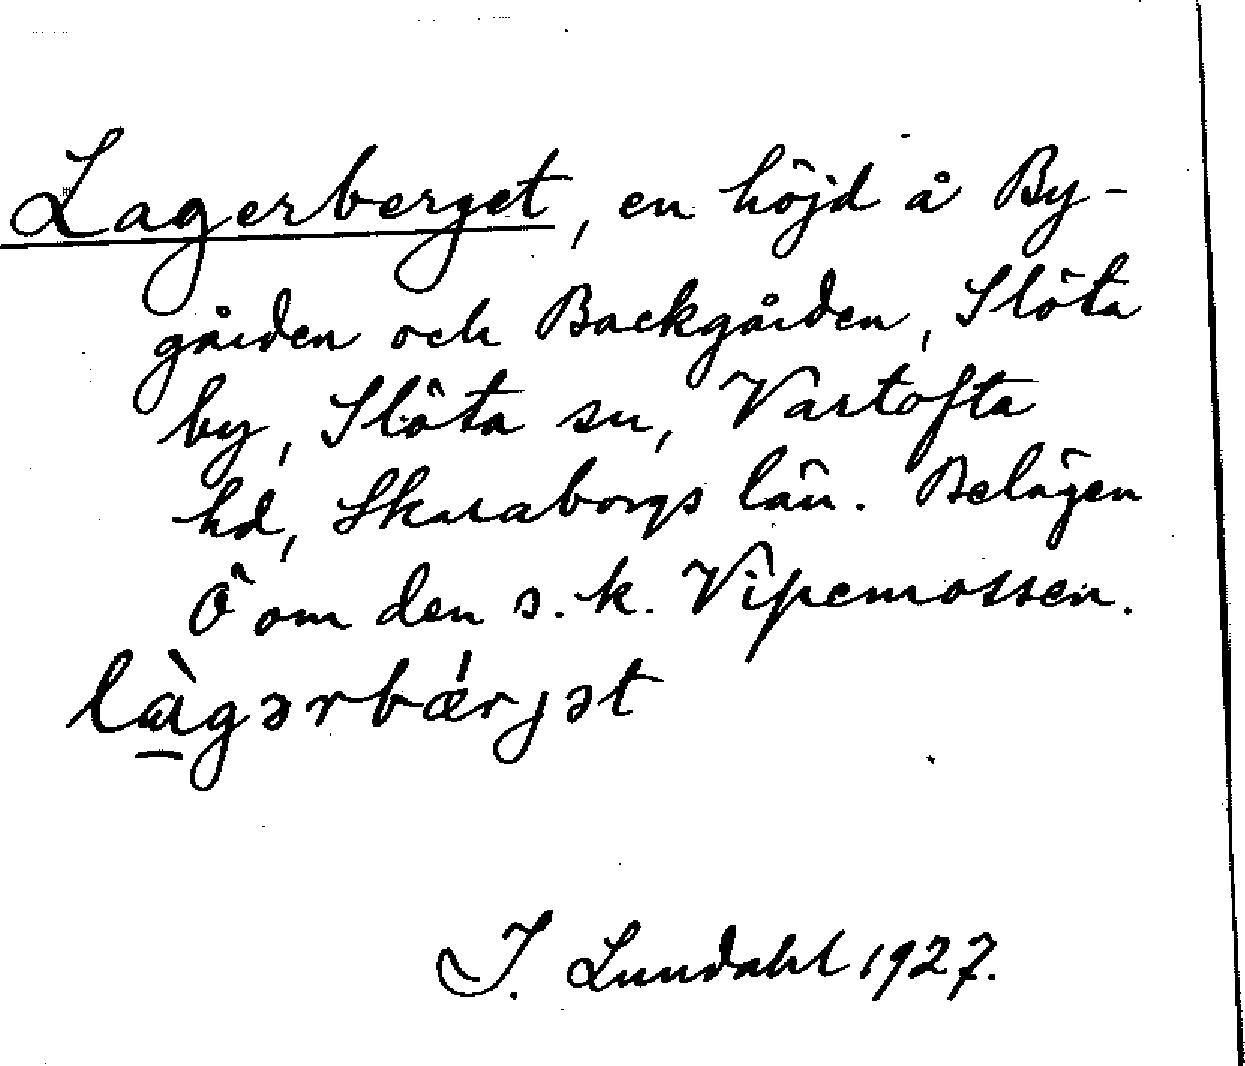 Lagerberget, en höjd å By-
gården och Backgården, Slöta
by, Slöta sn, Vartofta
hd, Skaraborgs län. Belägen
Ö om den s.k. Vipemossen.
là̠gərbǽrjət
I. Lundahl 1927.